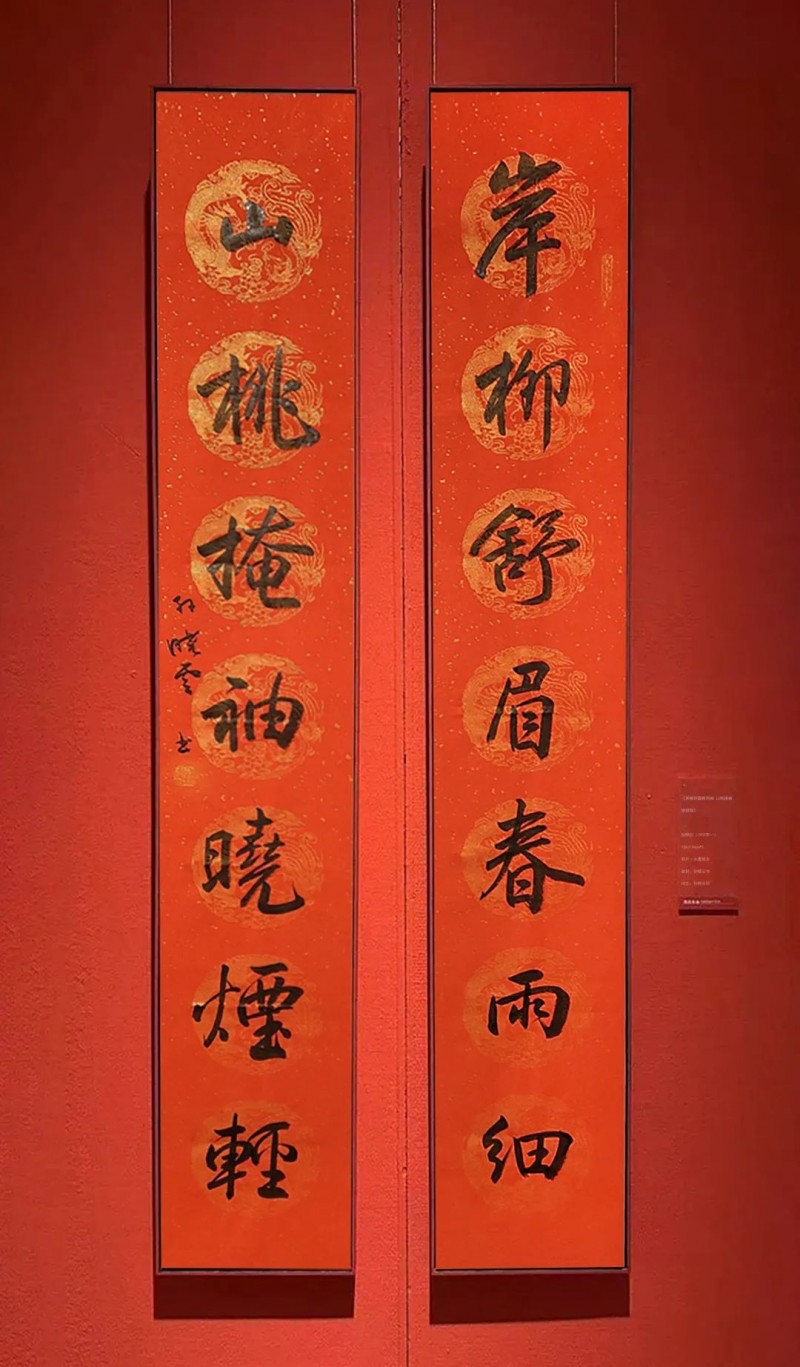 岸柳舒眉春雨細
山桃掩袖曉煙輕
孙曉雲 书